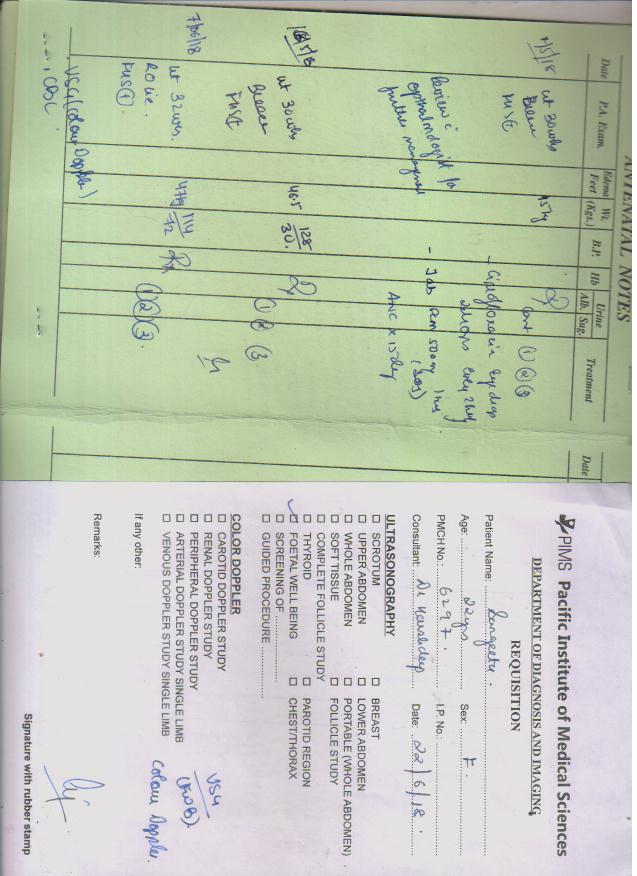 ANTENATAL NOTES
Date P.A. Exam. Edema Feet Wt. (Kgs.) B.P. Hb Urine Alb. Sug. Treatment Date
/5/18 ut 30wks 45kg
FHS
cont ① ② ③
- Ciprofloxacin eye drop
every 2 hly
Review c
opthalmologist for
further management
- Tab PCM 500mg
(SOS)
ANC x 15 day
/5/18 ut 30wks 46.5 128
FHS
① ② ③
7/06/18 ut 32wks. 47kg 114/72 Rx
FHS(+)
① ② ③.
USG (Colour Doppler)
, CBC
PIMS Pacific Institute of Medical Sciences
DEPARTMENT OF DIAGNOSIS AND IMAGING
REQUISITION
Patient Name: Sangeeta.
Age: 22yrs Sex: F.
PMCH No.: 6297. I.P. No.:
Consultant: Dr Date: 22/6/18.
ULTRASONOGRAPHY
☐ SCROTUM ☐ BREAST
☐ UPPER ABDOMEN ☐ LOWER ABDOMEN
☐ WHOLE ABDOMEN ☐ PORTABLE (WHOLE ABDOMEN)
☐ SOFT TISSUE ☐ FOLLICLE STUDY
☐ COMPLETE FOLLICLE STUDY
☐ THYROID ☐ PAROTID REGION
☑ FOETAL WELL BEING ☐ CHEST/THORAX
☐ SCREENING OF
☐ GUIDED PROCEDURE
COLOR DOPPLER
☐ CAROTID DOPPLER STUDY
☐ RENAL DOPPLER STUDY
☐ PERIPHERAL DOPPLER STUDY
☐ ARTERIAL DOPPLER STUDY SINGLE LIMB
☐ VENOUS DOPPLER STUDY SINGLE LIMB
USG
(FWB).
Colour Doppler.
If any other:
Remarks:
Signature with rubber stamp